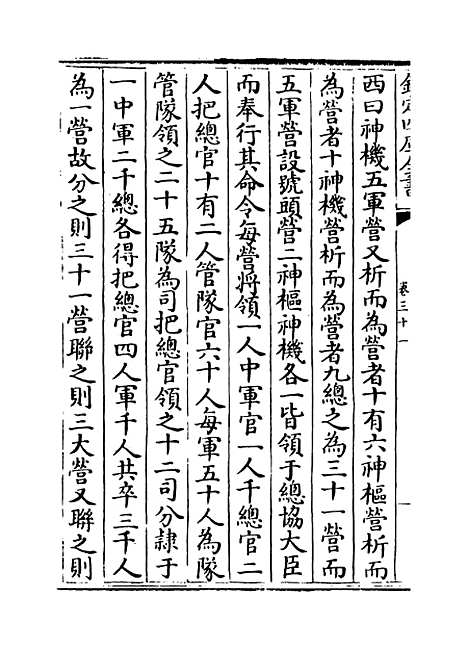 欽定四庫全書
卷三十一
西曰神機五軍營又析而為營者十有六神樞營析而
為營者十神機營析而為營者九總之為三十一營而
五軍營設號頭營二神樞神機各一皆領于總協大臣
而奉行其命令每營將領一人中軍官一人千總官二
人把總官十有二人管隊官六十人每軍五十人為隊
管隊領之二十五隊為司把總官領之十二司分隸于
一中軍二千總各得把總官四人軍千人共卒三千人
為一營故分之則三十一營聯之則三大營又聯之則